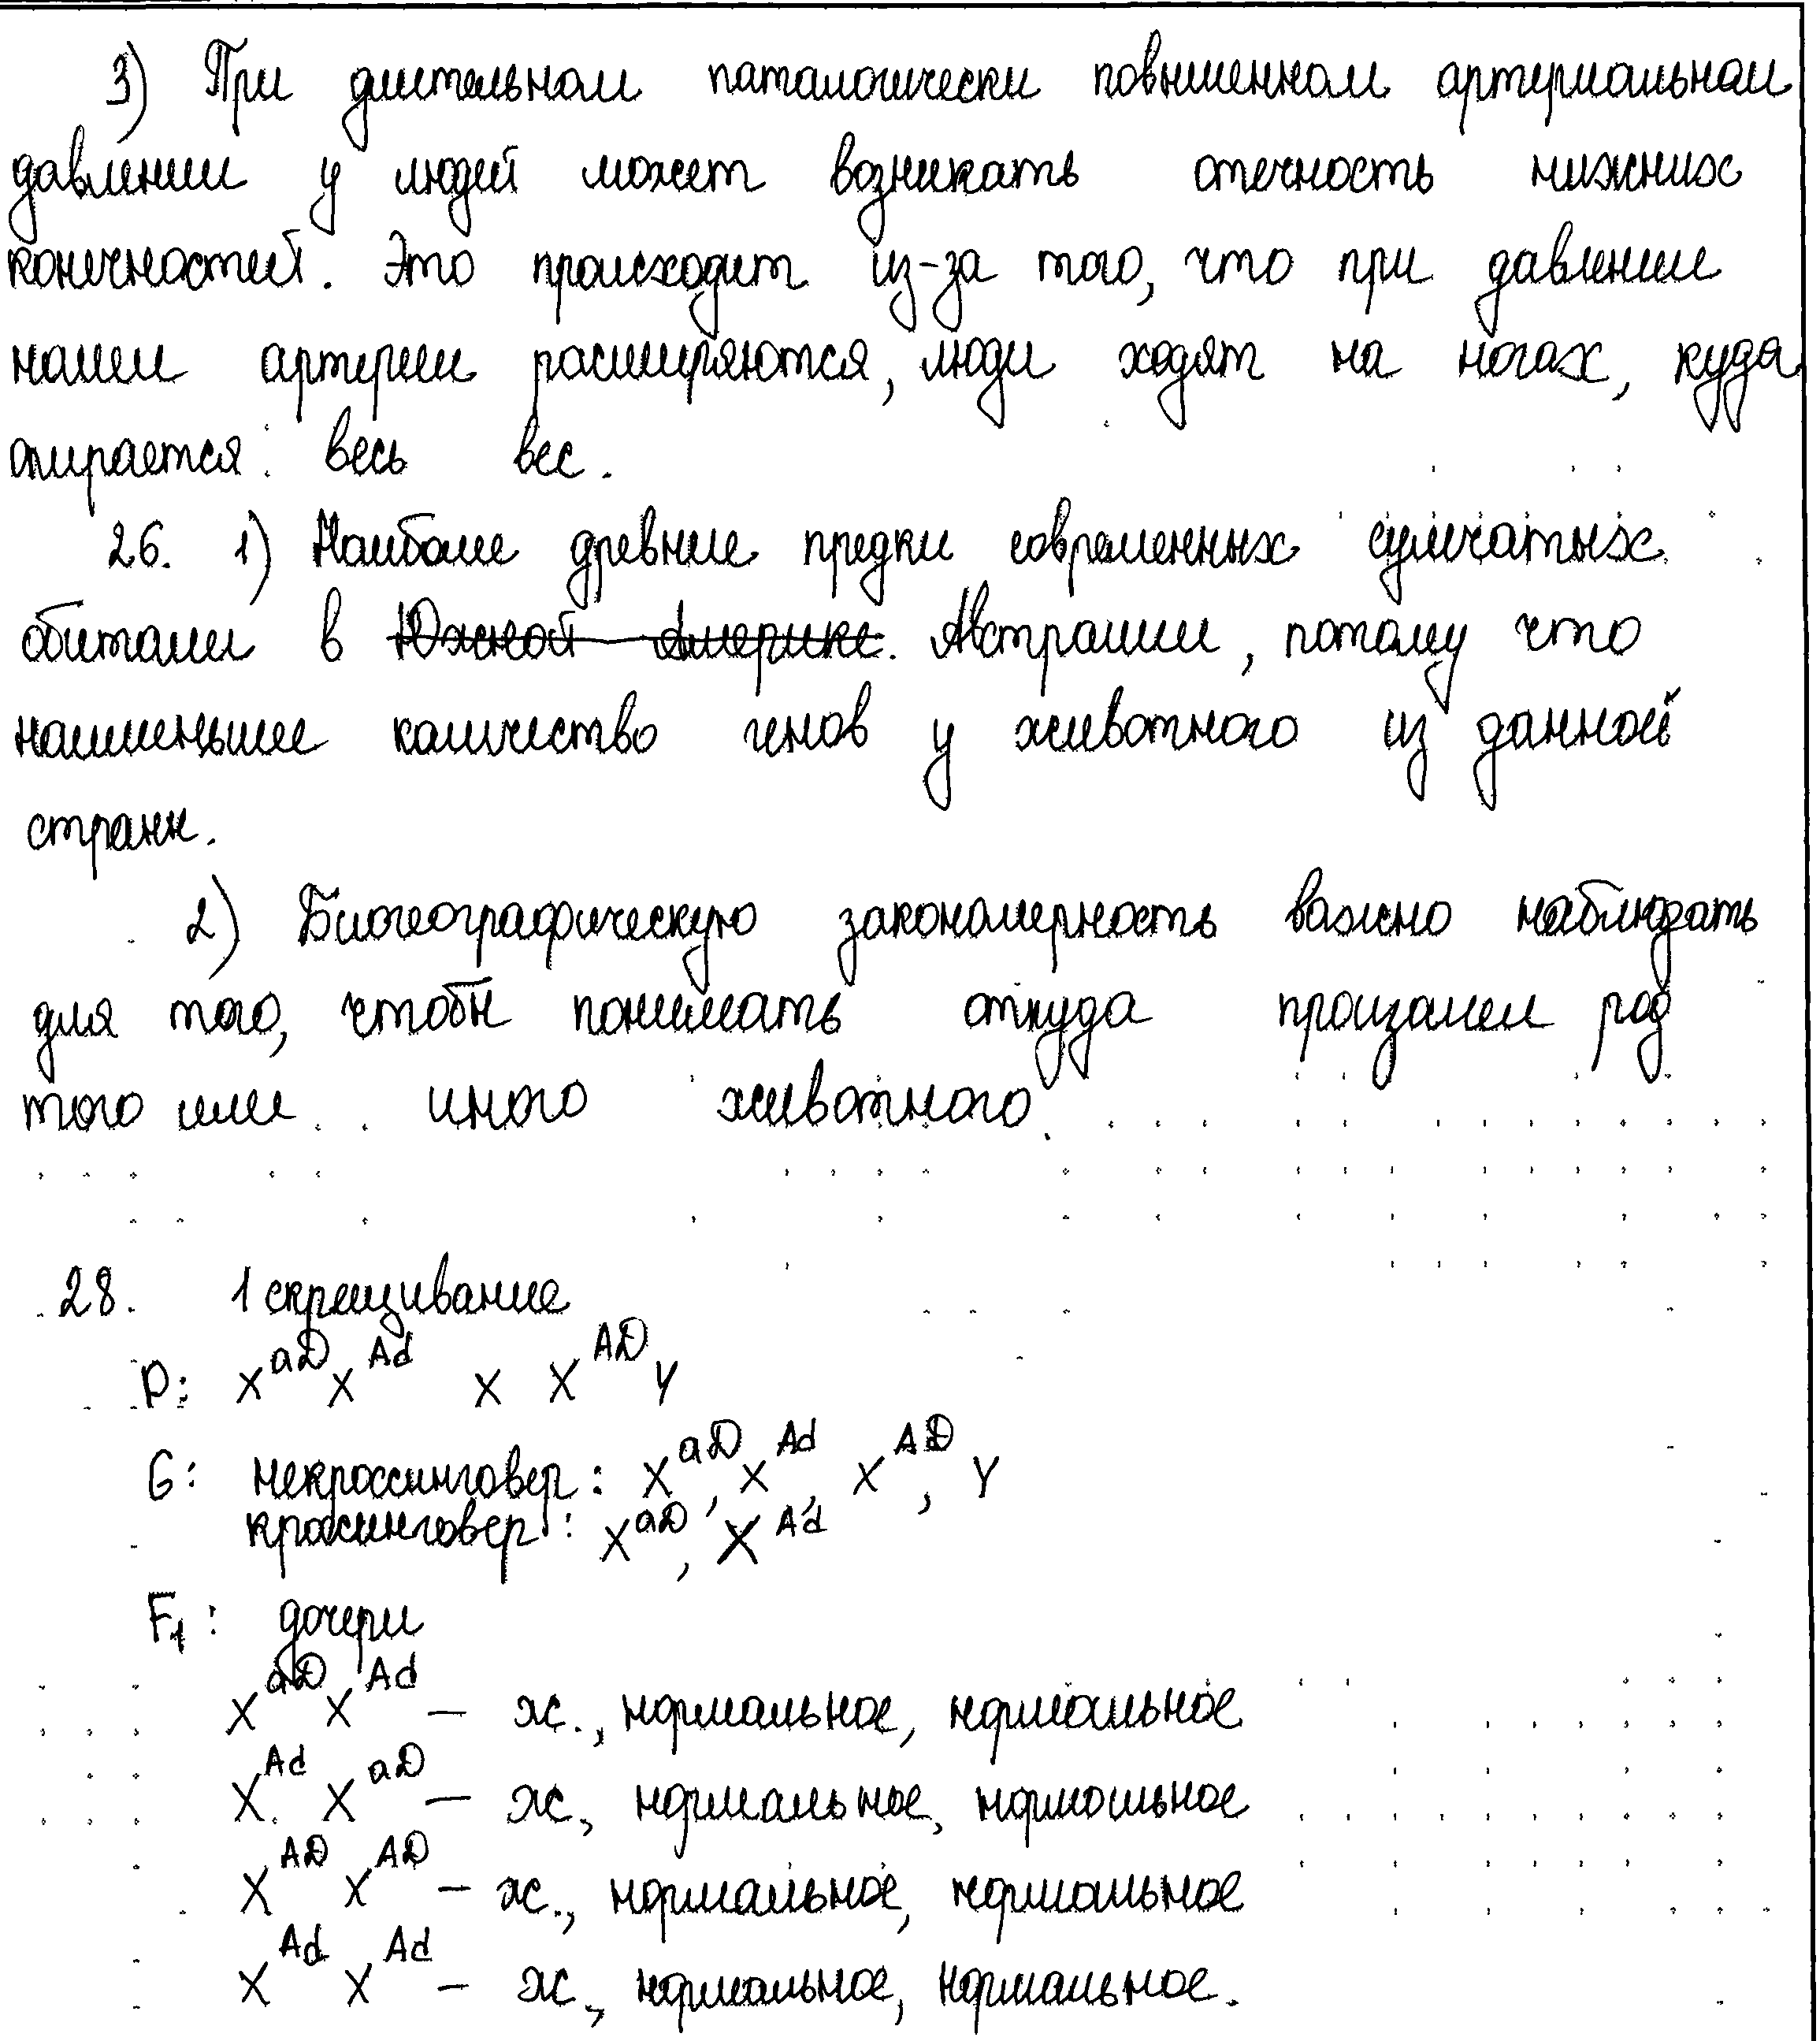 3) При длительном паталогически повышенном артериальном
давлении у людей может возникать отечность нижних
конечностей. Это происходит из-за того, что при давлении
наши артерии расширяются, люди ходят на ногах, куда
опирается весь вес.
26. 1) Наиболе древние предки современных сумчатых
обитали в ~~Южной Америке.~~ Австралии, потому что
наименьшее количество генов у животного из данной
страны.
2) Биогеографическую закономерность важно наблюдать
для того, чтобы понимать откуда произашел род
того или иного животного.
28. 1 скрещивание
P: X^aD X^Ad x X^AD Y
G: некроссинговер: X^aD, X^Ad, X^AD, Y
кроссинговер: X^aD, X^Ad
F₁: дочери
X^aD X^Ad – ж., нормальное, нормальное
X^Ad X^aD – ж., нормальное, нормальное
X^AD X^AD – ж., нормальное, нормальное
X^Ad X^Ad – ж., нормальное, нормальное.